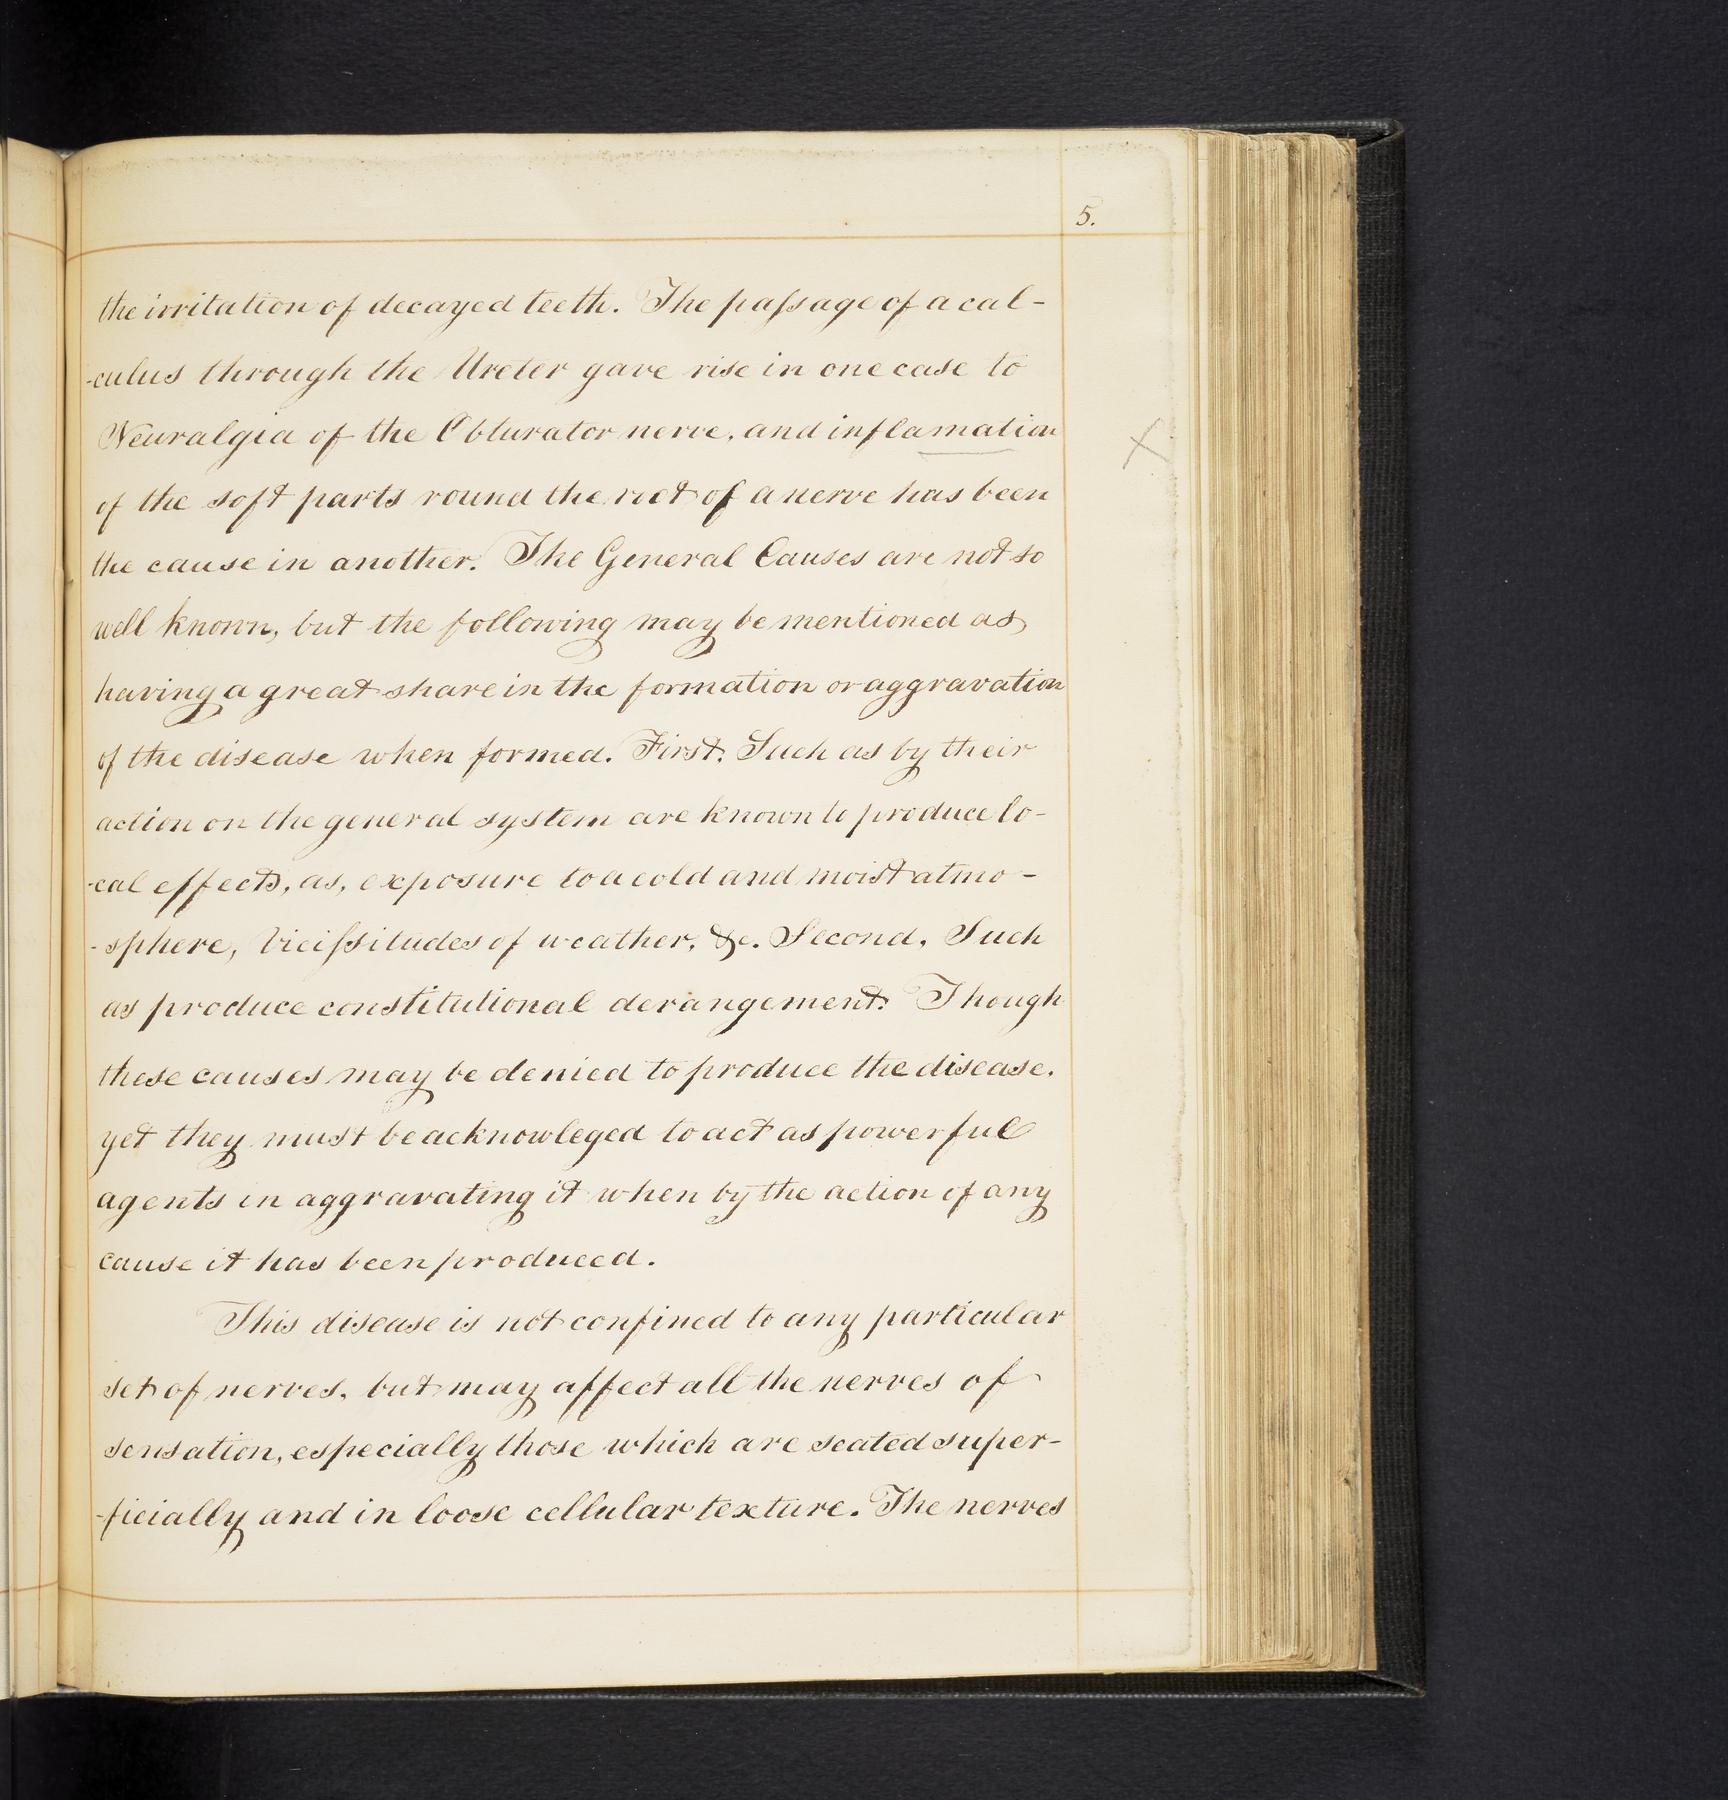 5.
the irritation of decayed teeth. The paſsage of a cal-
-culus through the Ureter gave rise in one case to
Neuralgia of the Obturator nerve, and inflamation
X
of the soft parts round the root of a nerve has been
the cause in another. The General Causes are not so
well known, but the following may be mentioned as
having a great share in the formation or aggravation
of the disease when formed. First. Such as by their
action on the general system are known to produce lo-
-cal effects, as, exposure to a cold and moist atmo-
-sphere, viciſsitudes of weather, &c. Second, Such
as produce constitutional derangement. Though
these causes may be denied to produce the disease.
yet they must be acknowleged to act as powerful
agents in aggravating it when by the action of any
cause it has been produced.
This disease is not confined to any particular
set of nerves, but may affect all the nerves of
sensation, especially those which are seated super-
-ficially and in loose cellular texture. The nerves